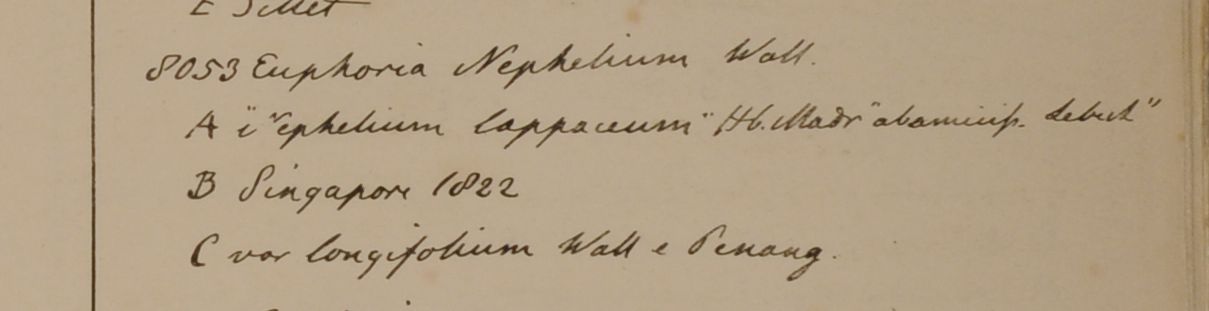 E Sillet
8053 Euphoria Nephelium Wall.
A "Nephelium lappaceum" Hb. Madr "ab amiciss.
B Singapore 1822
C var longifolium Wall e Penang.